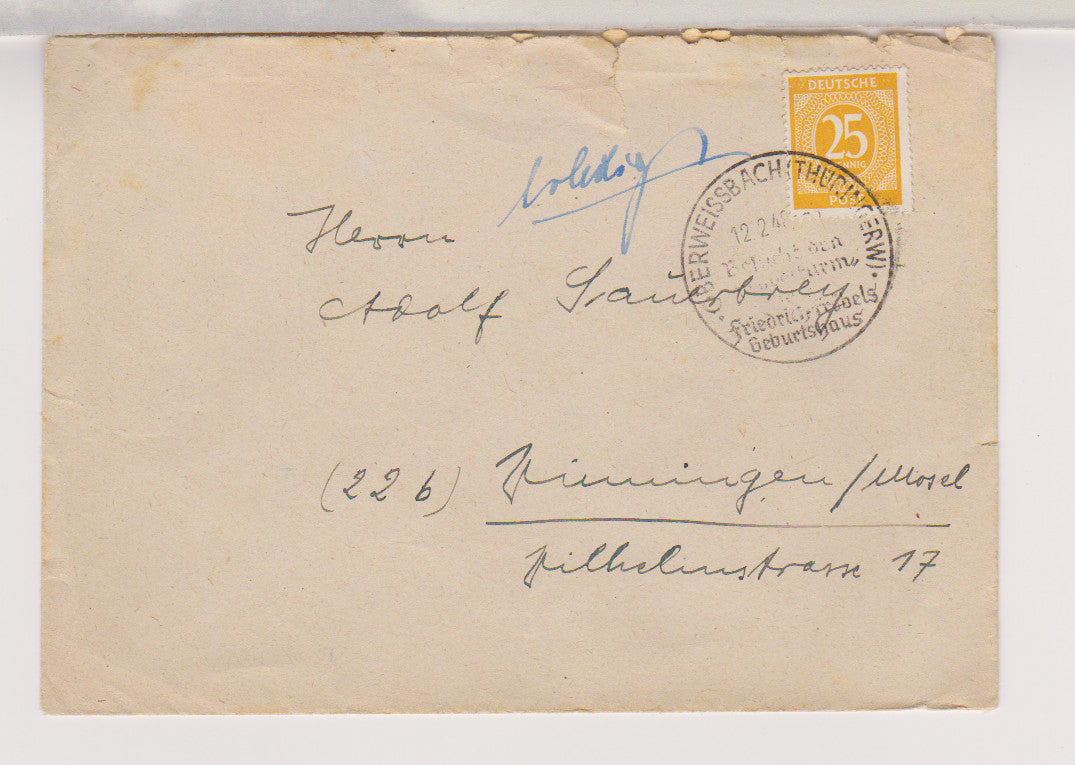 DEUTSCHE
25
PFENNIG
POST
OBERWEISSBACH (THÜRINGERW)
12.2.48
Besucht den
Friedrich Fröbels
Geburtshaus
erledigt
Herrn
Adolf Sauerbrey
(22b) Winningen/Mosel
Wilhelmstrasse 17